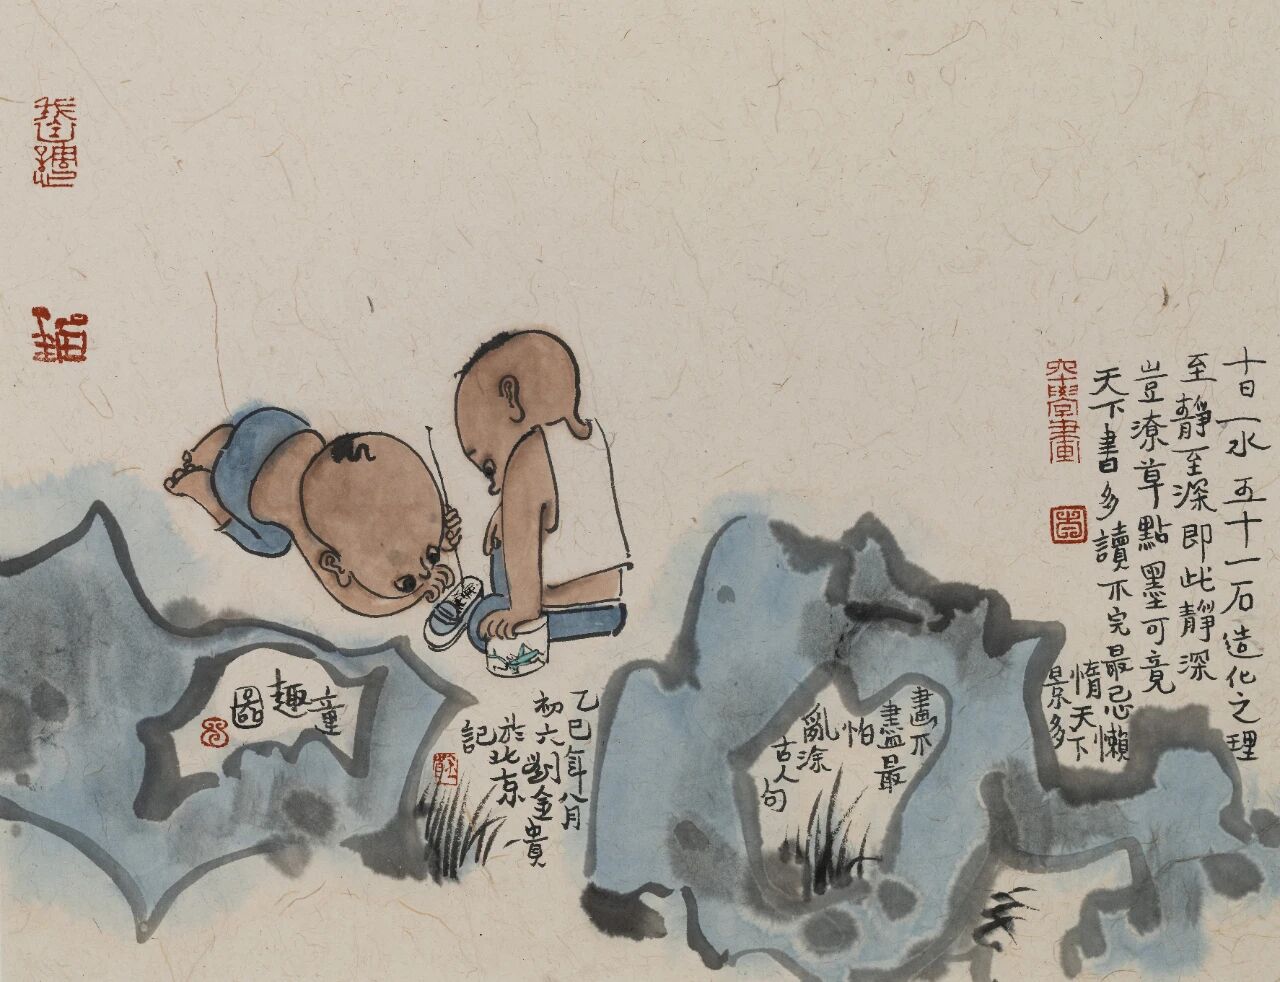 十日一水五十一石造化之理
至靜至深即此靜深
豈潦草點墨可竟
天下書多讀不完最忌懶
惰天下
景多
畫不
盡最
怕
亂涂
古人句
乙巳年八月
初六劉金貴
於北京
記
童趣圖